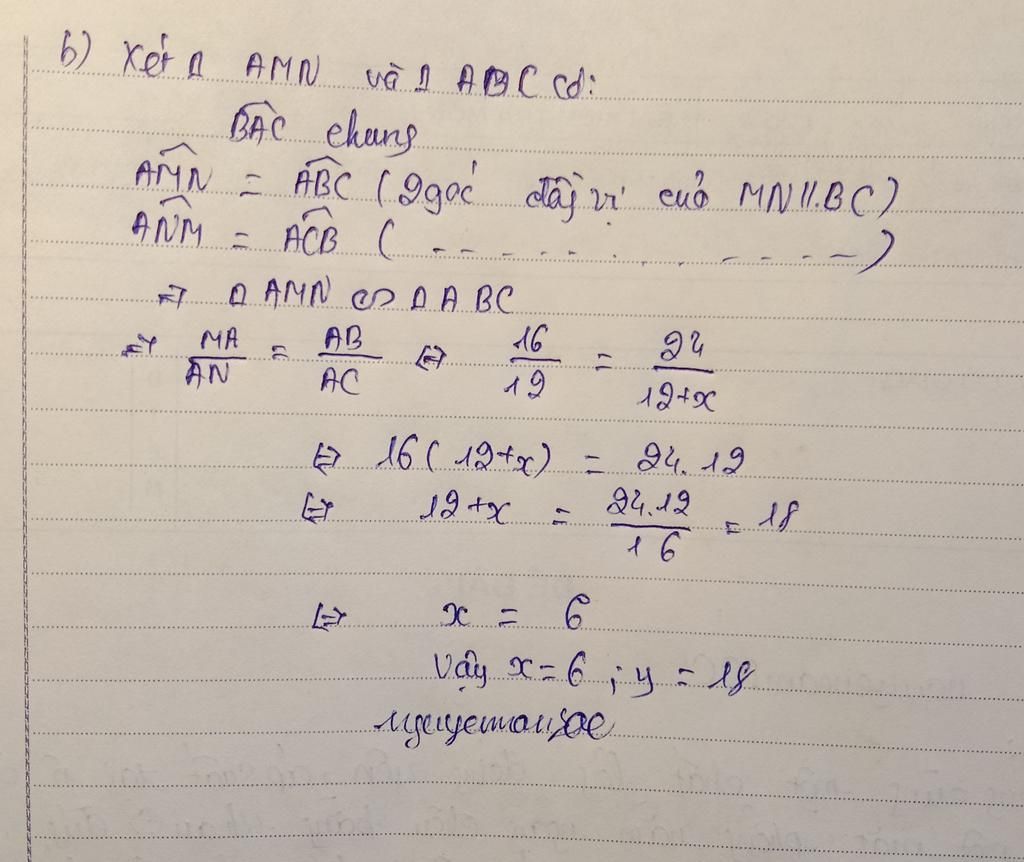 b) Xét Δ AMN và Δ ABC có:
BAC chung
AMN = ABC (2 góc đồng vị của MN//BC)
ANM = ACB ( - - - - - - . . . - - - - - )
=> Δ AMN ∽ Δ ABC
=> MA/AN = AB/AC <=> 16/12 = 24/12+x
<=> 16(12+x) = 24.12
<=> 12+x = 24.12/16 = 18
<=> x = 6
Vậy x=6 ; y = 18